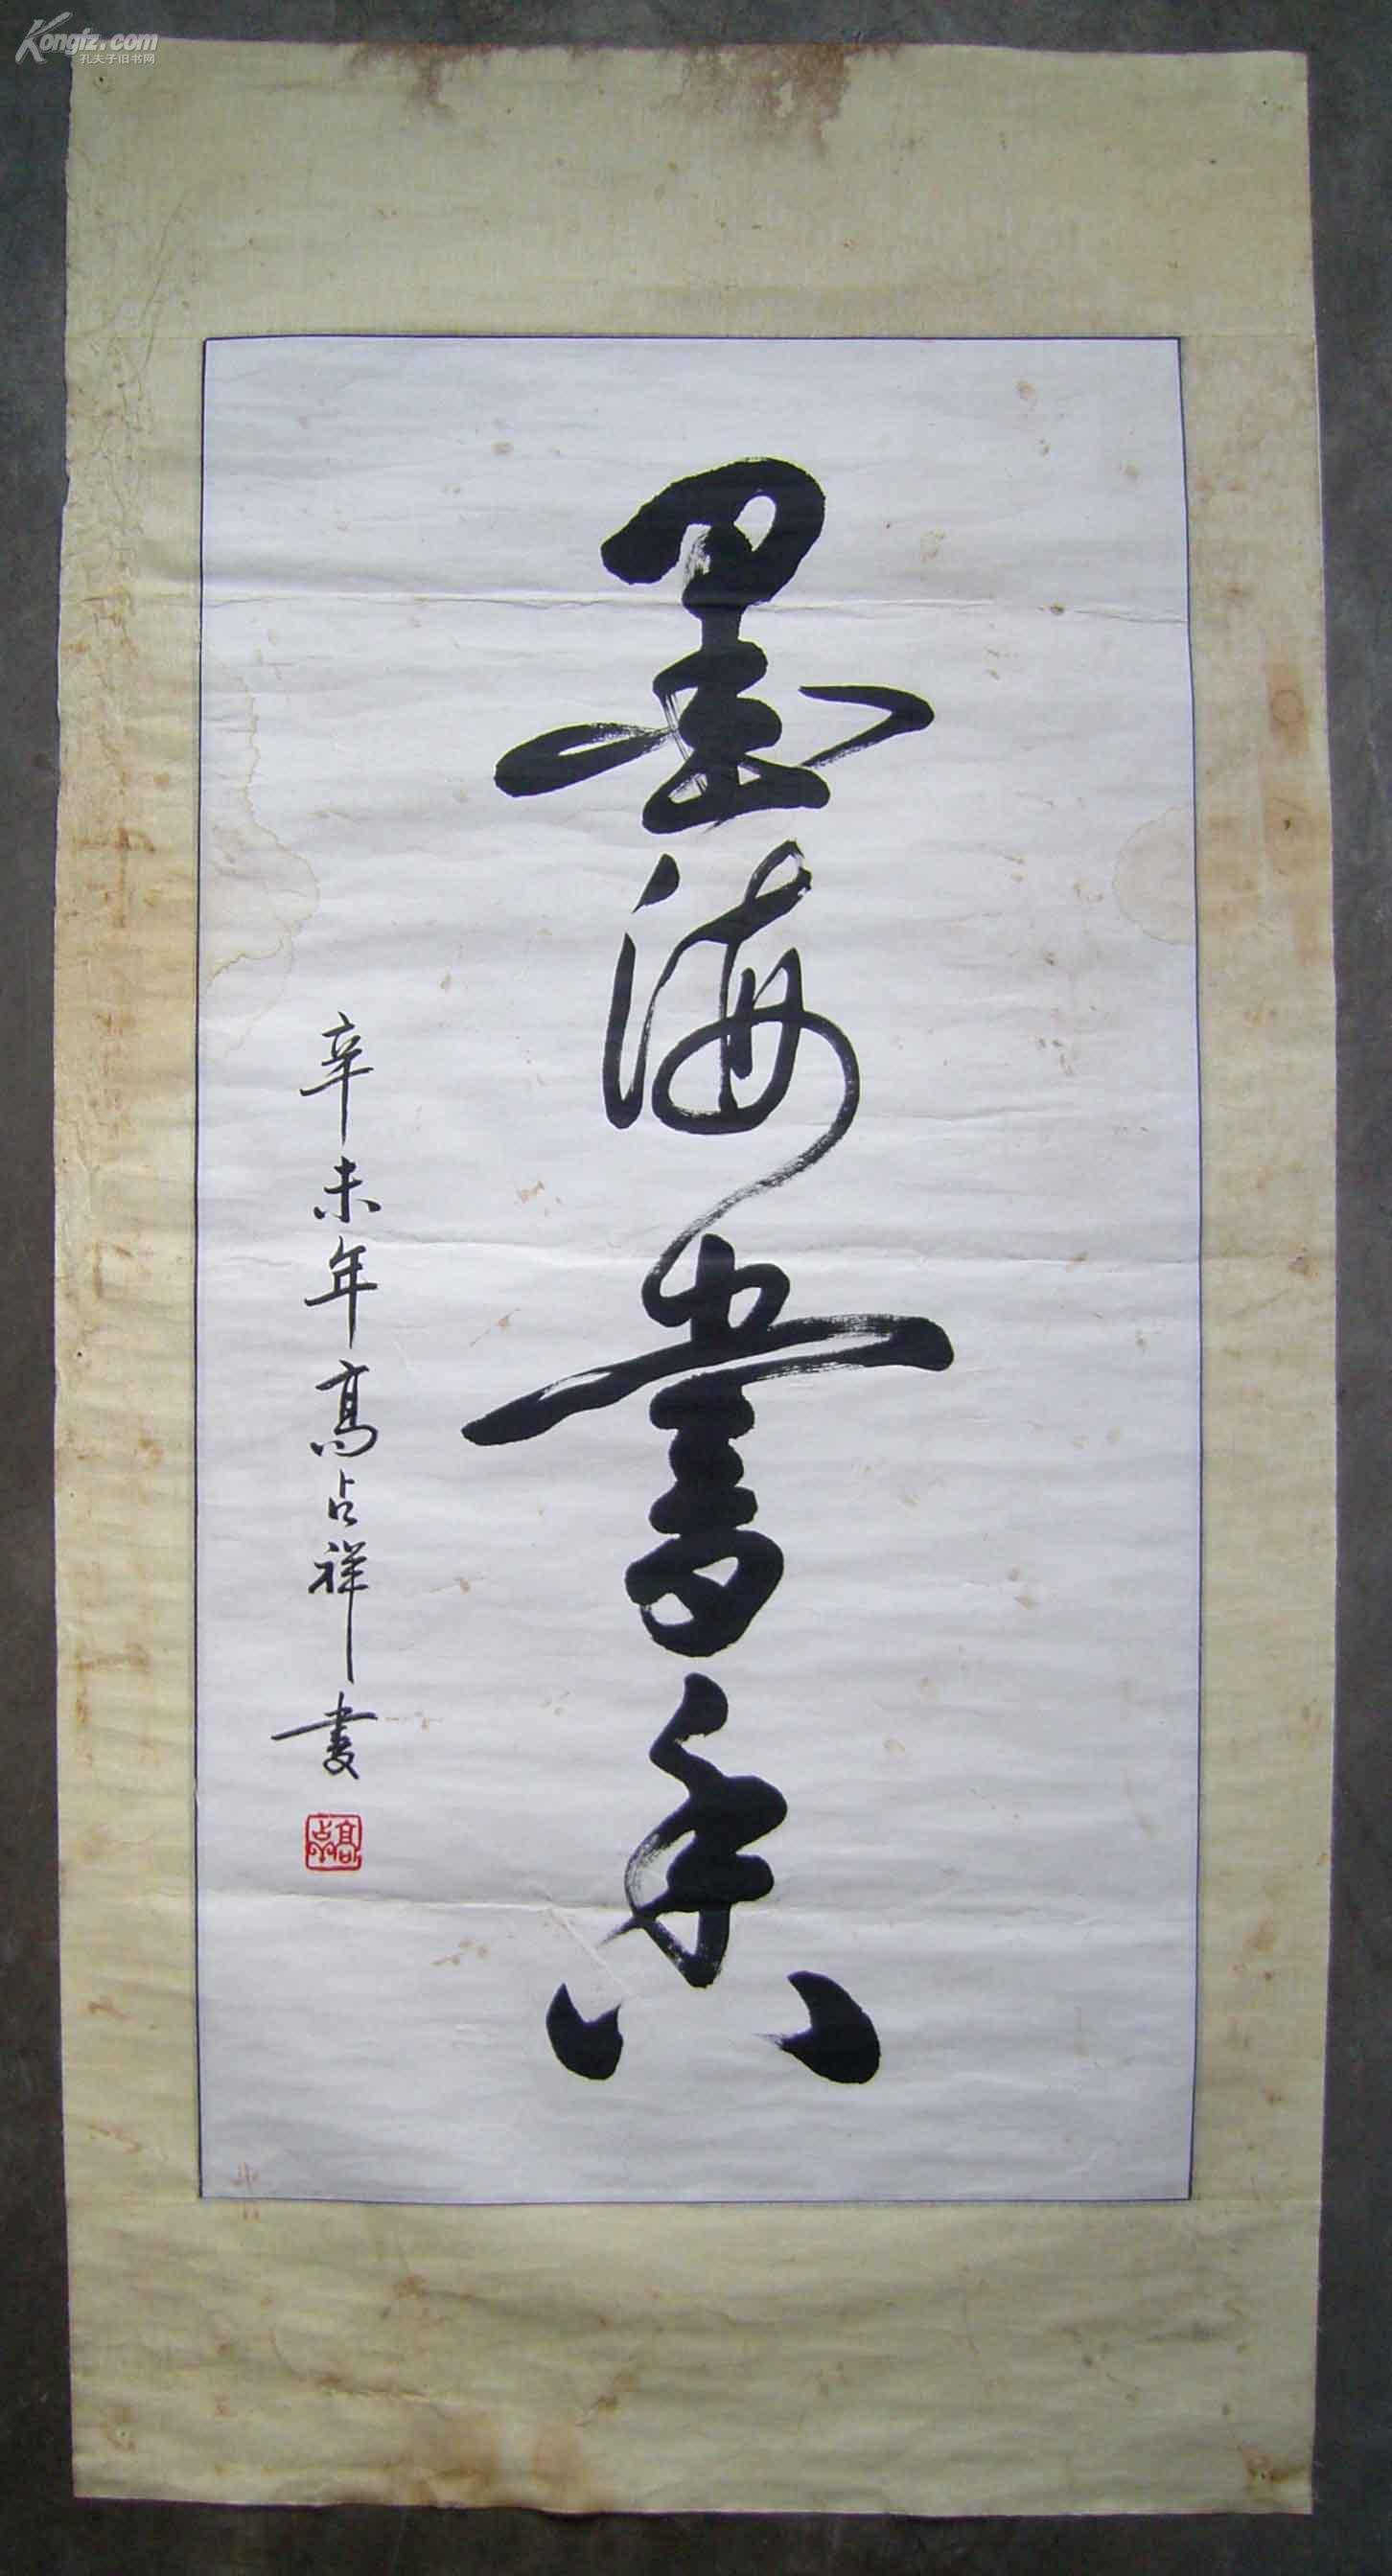 Kongfz.com
孔夫子旧书网
墨海书香
辛未年高占祥书